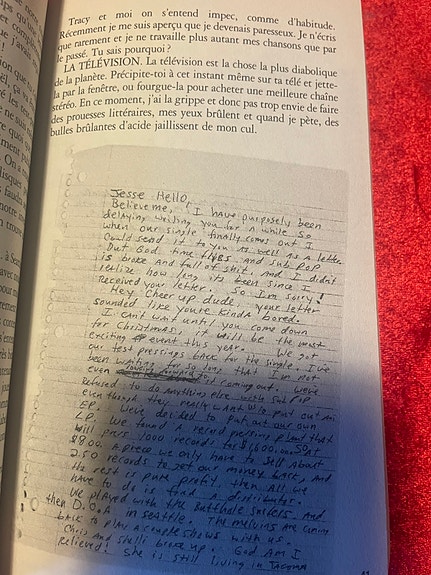 Tracy et moi on s'entend impec, comme d'habitude.
Récemment je me suis aperçu que je devenais paresseux. Je n'écris
que rarement et je ne travaille plus autant mes chansons que par
le passé. Tu sais pourquoi ?
LA TÉLÉVISION. La télévision est la chose la plus diabolique
de la planète. Précipite-toi à cet instant même sur ta télé et jette-
la par la fenêtre, ou fourgue-la pour acheter une meilleure chaîne
stéréo. En ce moment, j'ai la grippe et donc pas trop envie de faire
des prouesses littéraires, mes yeux brûlent et quand je pète, des
bulles brûlantes d'acide jaillissent de mon cul.
Jesse Hello,
Believe me, I have purposely been
delaying writing you for a while so
when our single finally comes out I
Could send it to you as well as a letter
But God time flys and Sub Pop
is broke and full of shit. And I didn't
realize how long its been since I
received your letter. So I'm sorry!
Hey, Cheer up dude, your letter
sounded like you're kinda bored.
I can't wait until you come down
for Christmas, it will be the most
exciting event this year. We got
our test pressings back for the single. I've
been waiting for so long that I'm not
even of coming out. Weve
Refused to do anything else with Sub Pop
even though they really want us to put out an
EP. Weve decided to put out our own
LP. We found a record pressing plant that
will press 1000 records for $1,600.00 So at
$8.00 Apiece we only have to sell about
250 records to get our money back, and
the rest is pure profit, then All we
have to do is find a distributor.
We played with the Butthole Surfers And
then D.O.A in Seattle. The melvins are coming
back to play a couple shows with us.
Chris and Shelli broke up. God Am I
Relieved! She is still living in Tacoma